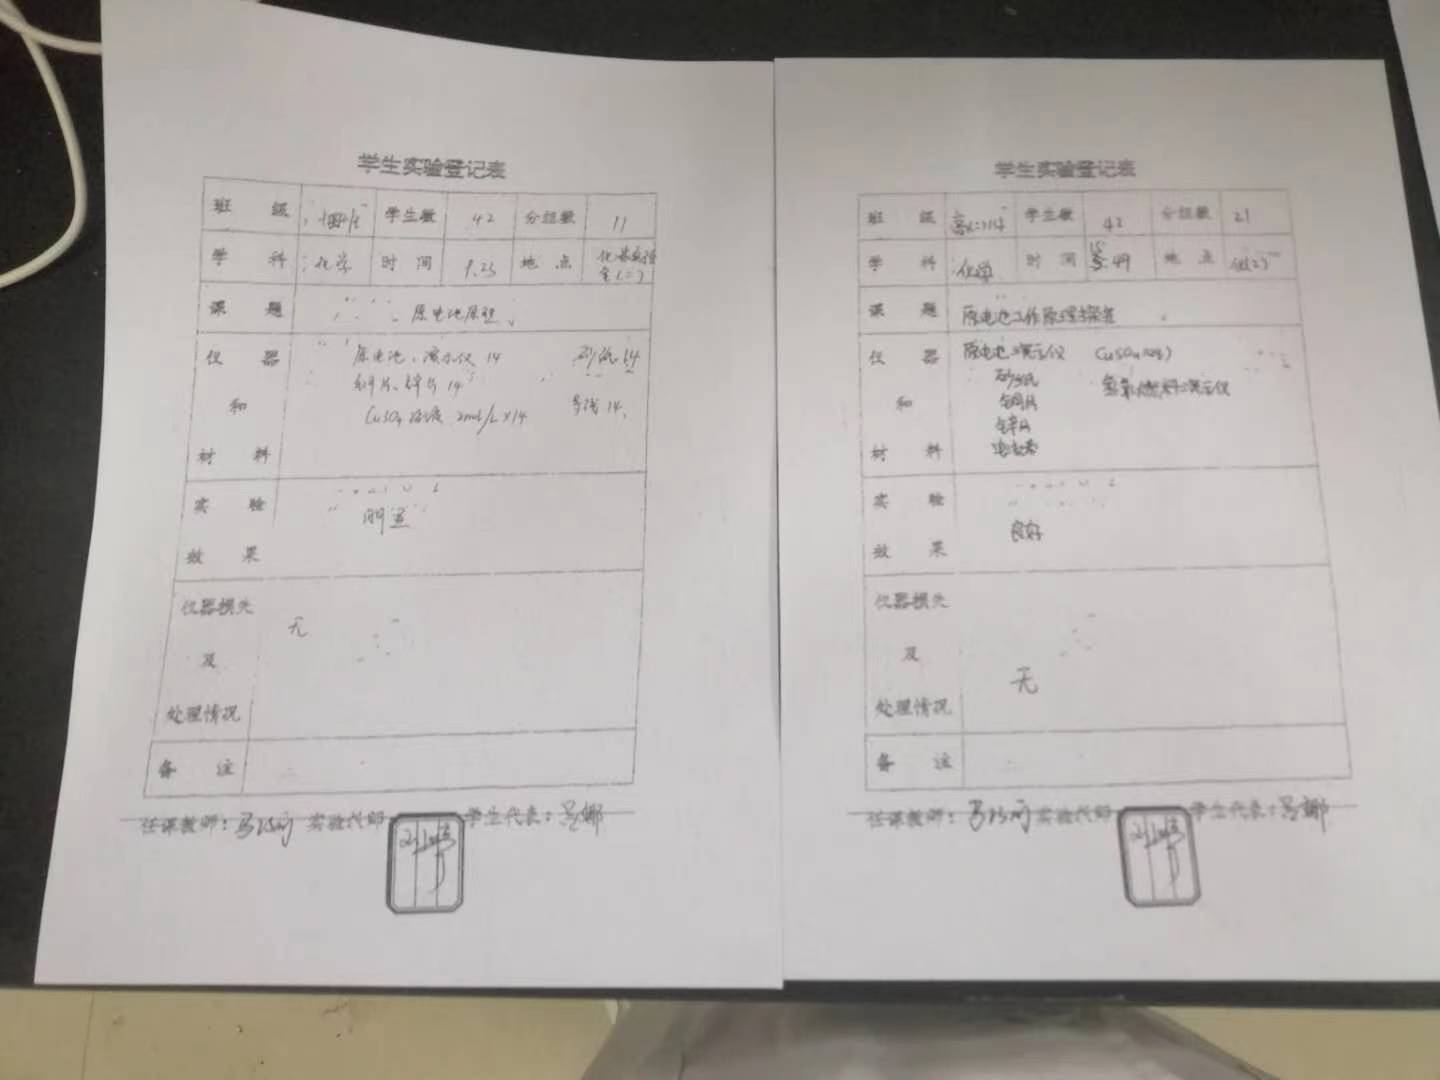 学生实验登记表
班 级 学生数 42 分组数 11
学 科 化学 时 间 9.23 地 点 化学实验室(二)
课 题 原电池原理
仪 器 和 材 料
原电池演示仪 14 砂纸 14
铜片、锌片 14
CuSO4溶液 2mol/L×14 导线 14
实 验 效 果 明显
仪器损失及处理情况 无
备 注
任课教师: 实验代师 学生代表:
学生实验登记表
班 级 学生数 42 分组数 21
学 科 化学 时 间 地 点 化(2)
课 题 原电池工作原理探究
仪 器 和 材 料
原电池演示仪 CuSO4
砂纸 氢氧燃料演示仪
铜片
锌片
实 验 效 果 良好
仪器损失及处理情况 无
备 注
任课教师: 实验代师 学生代表: